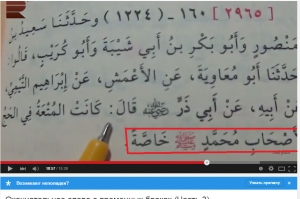 [٢٩٦٥] ١٦٠ - (١٢٢٤) وَحَدَّثَنَا سَعِيدُ بْنُ
مَنْصُورٍ وَأَبُو بَكْرِ بْنُ أَبِي شَيْبَةَ وَأَبُو كُرَيْبٍ، قَالُوا:
حَدَّثَنَا أَبُو مُعَاوِيَةَ، عَنِ الْأَعْمَشِ، عَنْ إِبْرَاهِيمَ التَّيْمِيِّ،
عَنْ أَبِيهِ، عَنْ أَبِي ذَرٍّ قَالَ: كَانَتِ الْمُتْعَةُ فِي الْحَجِّ
لِأَصْحَابِ مُحَمَّدٍ ﷺ خَاصَّةً.
Возникают неполадки?
Узнать причину